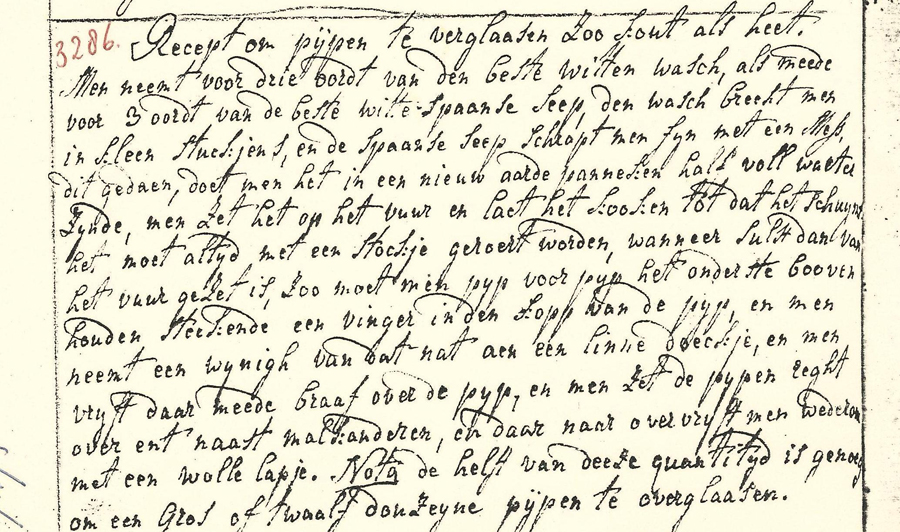 3286. Recept om pijpen te verglaasen zoo kout als heet.
Men neemt voor drie oordt van den beste witten wasch, als meede
voor 3 oordt van de beste witte spaanse seep, den wasch breekt men
in kleen stuckjens, en de spaanse seep schrapt men fyn met een Mes,
dit gedaen, doet men het in een nieuw aarde panneken half voll water
zynde, men zet het op het vuur en laet het kooken tot dat het schuymt
het moet altyd met een stockje geroert worden, wanneer sulkx dan van
het vuur gezet is, zoo moet men pyp voor pyp het onderste booven
houden steekende een vinger in den kopp van de pyp, en men
neemt een wynigh van dat nat aen een linne doeckje, en men
vryft daar meede braaf over de pyp, en men zet de pypen reght
over ent naast malkanderen, en daar naar overvryft men wederom
met een wolle lapje. Nota de helft van deeze quantityd is genoeg
om een Gros of twaalf douzeyne pijpen te overglaasen.